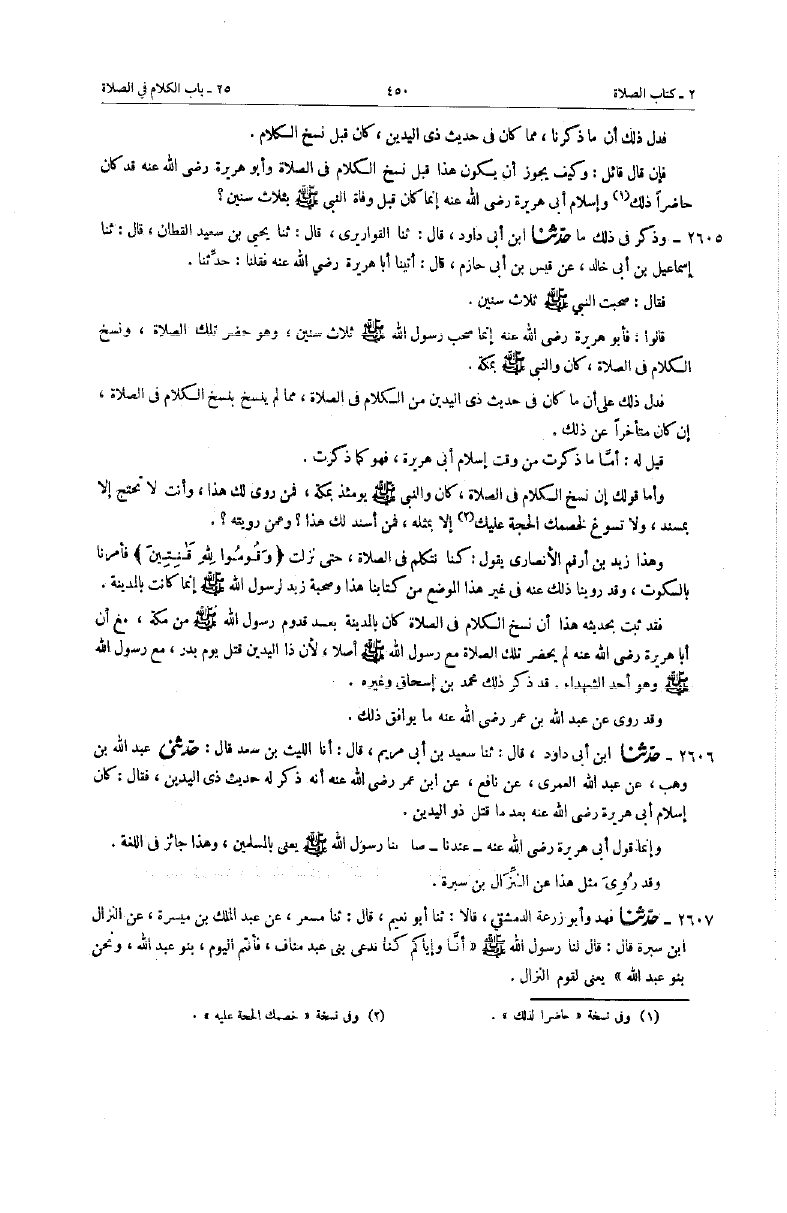 ٢ ـ كتاب الصلاة ٤٥٠ ٢٥ ـ باب الكلام في الصلاة
فدل ذلك أن ما ذكرنا ، مما كان فى حديث ذى اليدين ، كان قبل نسخ الكلام .
فإن قال قائل : وكيف يجوز أن يكون هذا قبل نسخ الكلام فى الصلاة وأبو هريرة رضى الله عنه قد كان
حاضراً ذلك(١) وإسلام أبى هريرة رضى الله عنه إنما كان قبل وفاة النبي ﷺ بثلاث سنين ؟
٢٦٠٥ ـ وذكر فى ذلك ما حدّثنا ابن أبى داود ، قال : ثنا القواريرى ، قال : ثنا يحيى بن سعيد القطان ، قال : ثنا
إسماعيل بن أبى خالد ، عن قيس بن أبى حازم ، قال : أتينا أبا هريرة رضي الله عنه فقلنا : حدِّثنا .
فقال : صحبت النبي ﷺ ثلاث سنين .
قالوا : فأبو هريرة رضى الله عنه إنما صحب رسول الله ﷺ ثلاث سنين ، وهو حضر تلك الصلاة ، ونسخ
الكلام فى الصلاة ، كان والنبي ﷺ بمكة .
فدل ذلك على أن ما كان فى حديث ذى اليدين من الكلام فى الصلاة ، مما لم ينسخ بنسخ الكلام فى الصلاة ،
إن كان متأخراً عن ذلك .
قيل له : أمَّا ما ذكرت من وقت إسلام أبى هريرة ، فهو كما ذكرت .
وأما قولك إن نسخ الكلام فى الصلاة ، كان والنبي ﷺ يومئذ بمكة ، فمن روى لك هذا ، وأنت لا تحتج إلا
بمسند ، ولا تسوغ لخصمك الحجة عليك(٢) إلا بمثله ، فمن أسند لك هذا ؟ وعمن رويته ؟ .
وهذا زيد بن أرقم الأنصارى يقول : كنا نتكلم فى الصلاة ، حتى نزلت ﴿ وَقُومُوا لِلّٰهِ قَـٰنِتِينَ ﴾ فأمرنا
بالسكوت ، وقد روينا ذلك عنه فى غير هذا الموضع من كتابنا هذا وصحبة زيد لرسول الله ﷺ إنما كانت بالمدينة .
فقد ثبت بحديثه هذا أن نسخ الكلام فى الصلاة كان بالمدينة بعد قدوم رسول الله ﷺ من مكة ، مع أن
أبا هريرة رضى الله عنه لم يحضر تلك الصلاة مع رسول الله ﷺ أصلا ، لأن ذا اليدين قتل يوم بدر ، مع رسول الله
ﷺ وهو أحد الشهداء . قد ذكر ذلك محمد بن إسحاق وغيره .
وقد روى عن عبد الله بن عمر رضى الله عنه ما يوافق ذلك .
٢٦٠٦ ـ حدّثنا ابن أبى داود ، قال : ثنا سعيد بن أبى مريم ، قال : أنا الليث بن سعد قال : حدّثنى عبد الله بن
وهب ، عن عبد الله العمرى ، عن نافع ، عن ابن عمر رضى الله عنه أنه ذكر له حديث ذى اليدين ، فقال : كان
إسلام أبى هريرة رضى الله عنه بعد ما قتل ذو اليدين .
وإنما قول أبى هريرة رضى الله عنه ـ عندنا ـ صا بنا رسول الله ﷺ يعنى بالمسلمين ، وهذا جائز فى اللغة .
وقد رُوِىَ مثل هذا عن النَّزَّال بن سبرة .
٢٦٠٧ ـ حدّثنا فهد وأبو زرعة الدمشقى ، قالا : ثنا أبو نعيم ، قال : ثنا مسعر ، عن عبد الملك بن ميسرة ، عن النزال
ابن سبرة قال : قال لنا رسول الله ﷺ « أنَّا وإياكم كنَّا ندعى بنى عبد مناف ، فأنتم اليوم ، بنو عبد الله ، ونحن
بنو عبد الله » يعنى لقوم النزال .
(١) وفى نسخة « حاضرا لذلك » . (٢) وفى نسخة « خصمك الحجة عليه » .